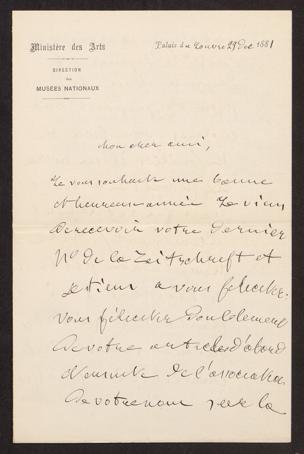 Ministère des Arts
DIRECTION
des
MUSÉES NATIONAUX
Palais du Louvre 29 Dec 1881
Mon cher ami,
Je vous souhaite une bonne
et heureuse année Je viens
de recevoir votre dernier
No de la Zeitschrift et
je tiens a vous féliciter.
vous féliciter doublement
de votre article d'abord
et ensuite de l'association
de votre nom avec le